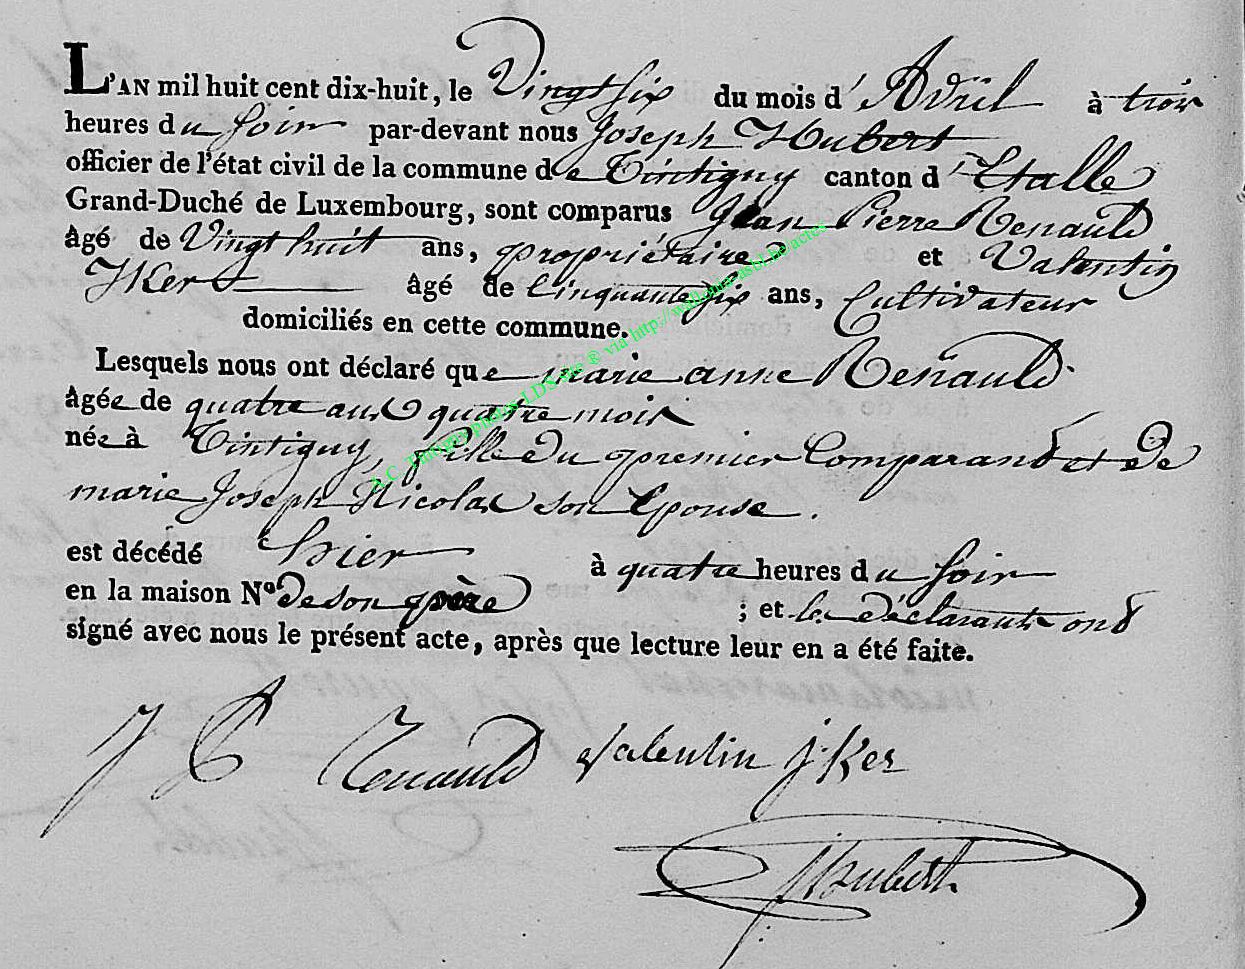 L'AN mil huit cent dix-huit, le Vingt Six du mois d'Avril à trois
heures du Soir par-devant nous Joseph Hubert
officier de l'état civil de la commune de Tintigny canton d'Etalle
Grand-Duché de Luxembourg, sont comparus Jean Pierre Renauld
âgé de Vingt huit ans, propriétaire et Valentin
Jker âgé de Cinquante Six ans, Cultivateur
domiciliés en cette commune.
Lesquels nous ont déclaré que marie anne Renauld
âgée de quatre ans quatre mois
née à Tintigny, fille du premier Comparand et de
marie Joseph Nicolas son Epouse.
est décédé hier à quatre heures du Soir
en la maison Nº de son père ; et les déclarants ont
signé avec nous le présent acte, après que lecture leur en a été faite.
J P Renauld Valentin jker
JHubert
A.C. Tintigny photos LDS site ® via http://wallonia.asbl.be/actes